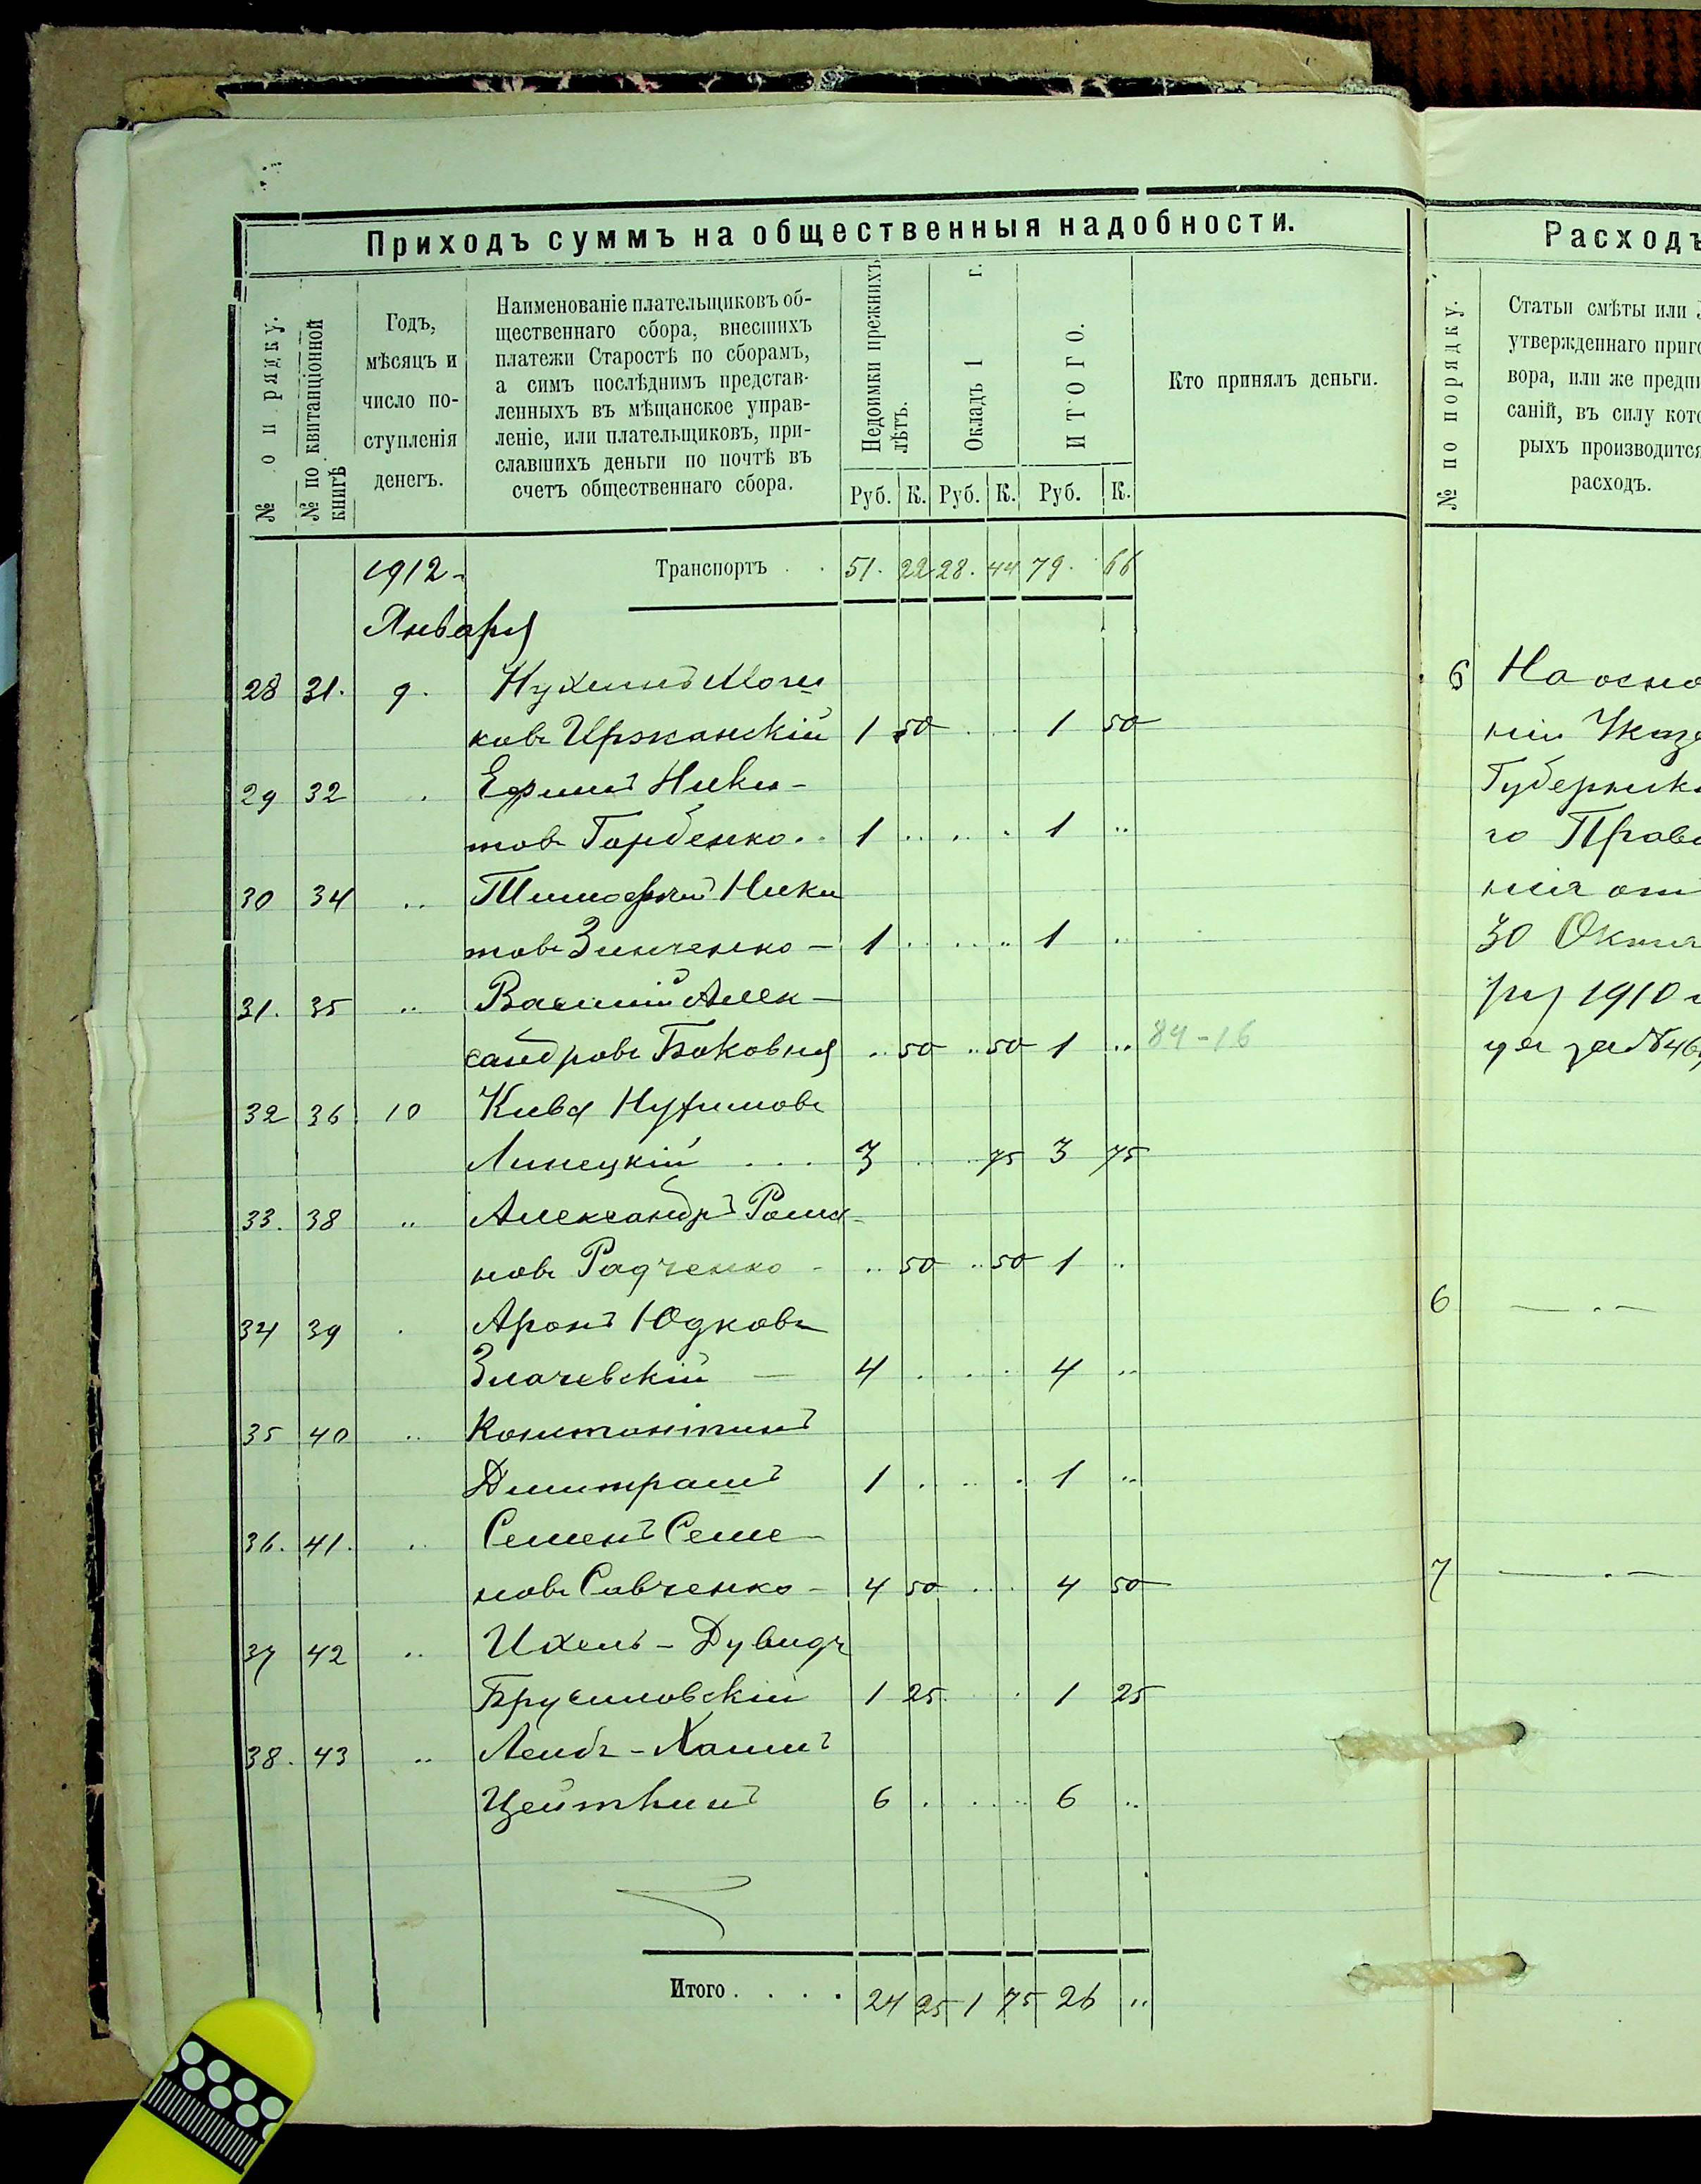 Приходъ суммъ на общественныя надобности.
№ по рядку.
№ по квитанціонной книгѣ
Годъ, мѣсяцъ и число поступленія денегъ.
Наименованіе плательщиковъ об-
щественнаго сбора, внесшихъ
платежи Старостѣ по сборамъ,
а симъ послѣднимъ представ-
ленныхъ въ мѣщанское управ-
леніе, или плательщиковъ, при-
славшихъ деньги по почтѣ въ
счетъ общественнаго сбора.
Недоимки прежнихъ лѣтъ.
Окладъ 1 г.
ИТОГО.
Кто принялъ деньги.
Руб. К. Руб. К. Руб. К.
1912 - Транспортъ . . 51. 22 28. 44 79. 66
Января
28 31. 9.
ковъ 1 50 . . 1 50
29 32 . Ефимъ Ники-
товъ Горбенко . . 1 .. .. . 1 ..
30 34 .. Тимофей Ники
товъ Зинченко - 1 .. .. .. 1 ..
31. 35 .. Василій Алек-
сандровъ Боковня .. 50 .. 50 1 .. 84-16
32 36. 10 Кива Нухимовъ
Линецкій . . . 3 . . .. 75 3 75
33. 38 .. Александръ Рома-
новъ Радченко - .. 50 .. 50 1 ..
34 39 . Аронъ Юдковъ
Злочевскій - 4 . . . 4 ..
35 40 .. Константинъ
Димитрашъ 1 . .. . 1 ..
36. 41. .. Семенъ Семе-
новъ Савченко - 4 50 . . 4 50
37 42 .. Ихель-Дувидъ
Брусиловскій 1 25 . 1 25
38. 43 .. Лейбъ-Хаимъ
Цейтлинъ 6 . . .. 6 ..
Итого . . . . 24 25 1 75 26 ..
Расходъ
№ по порядку.
Статьи смѣты или
утвержденнаго приго
вора, или же предпи
саній, въ силу кото
рыхъ производится
расходъ.
6 На осно
ніи Указа
Губернска
го Правл
нія отъ
30 Октя
ря 1910 г
да за №46
6 — . —
7 — . —